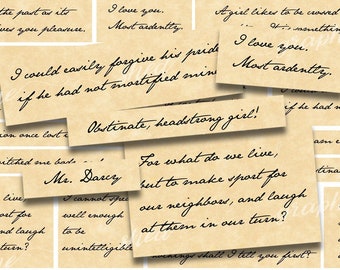 the past as its
gives you pleasure.
I love you.
Most ardently.
A girl likes to be crossed
I love you.
Most ardently.
I could easily forgive his pride,
if he had not mortified mine
Obstinate, headstrong girl!
on once lost
Mr. Darcy
For what do we live,
but to make sport for
our neighbors, and laugh
at them in our turn?
I cannot
well enough
to be
unintelligible
shall I tell you first?